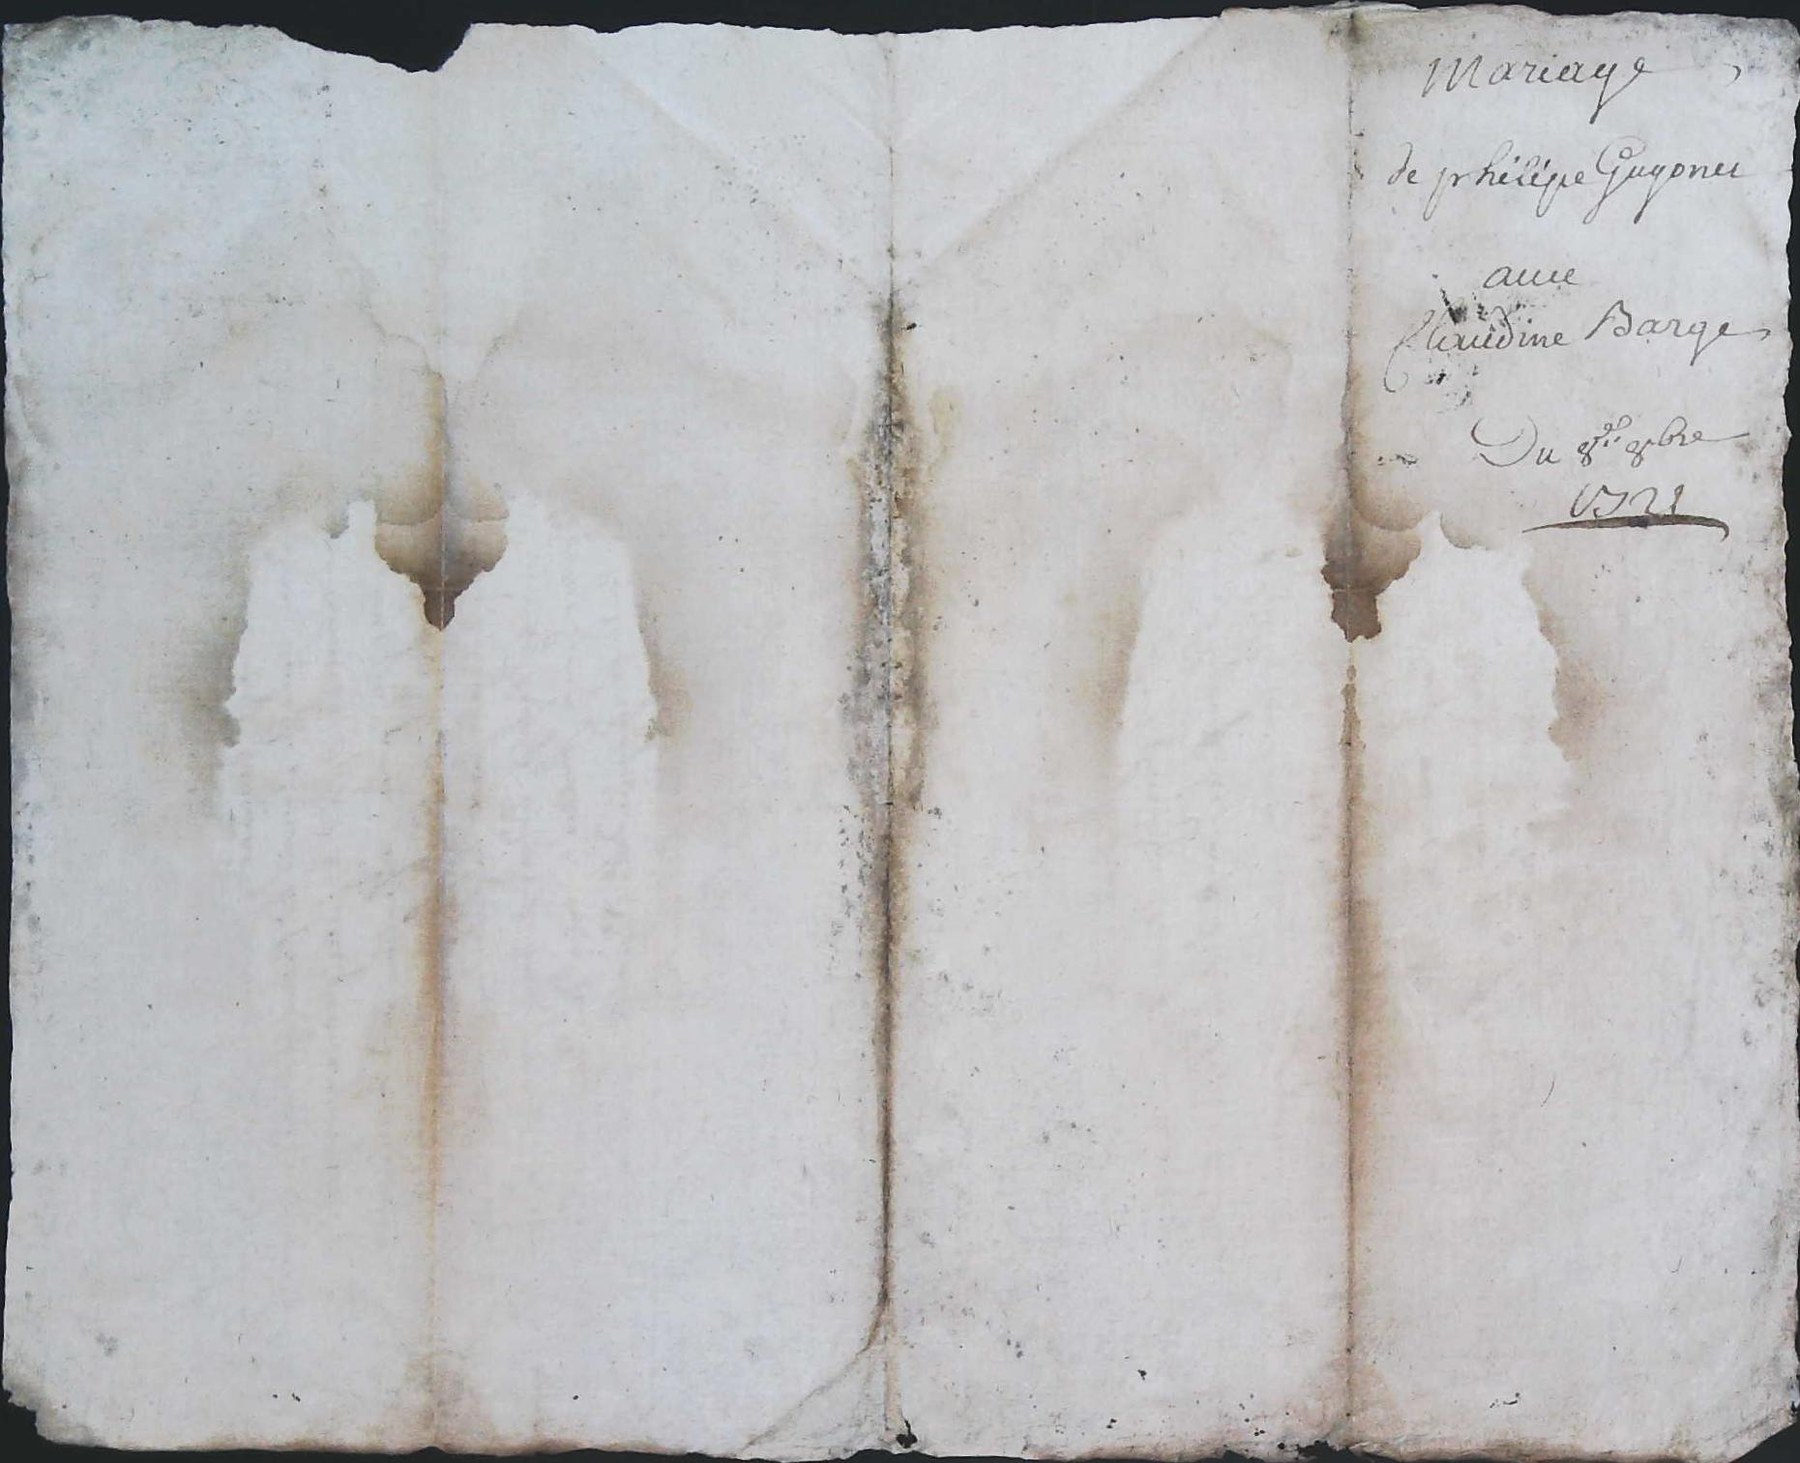 Mariage
de phelépe Guyonet
auec
Claudine Barge
Du 8e 8bre
1721